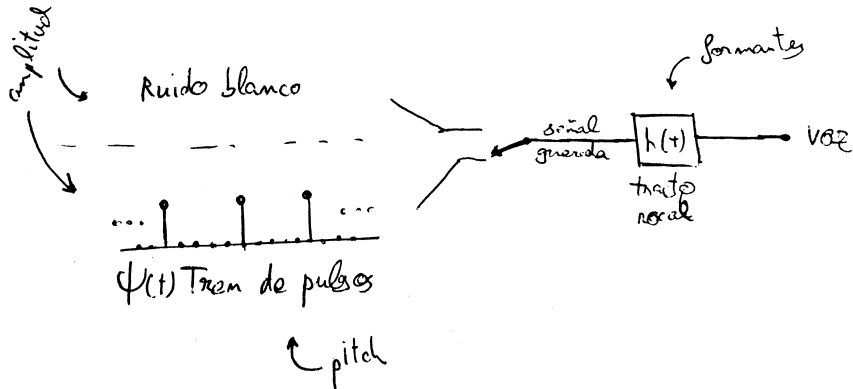 amplitud
Ruido blanco
formantes
señal
querida
h(t)
voz
tracto
vocal
... ...
ψ(t) Tren de pulsos
pitch